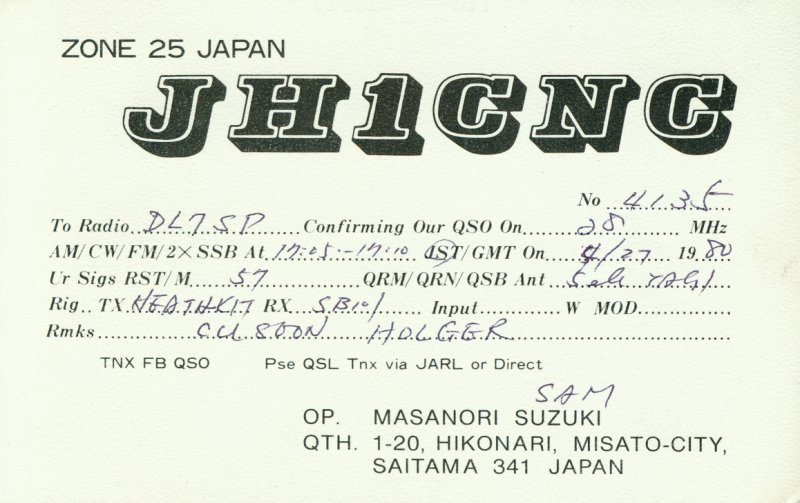 ZONE 25 JAPAN
JH1CNC
No 4135
To Radio DL7SP Confirming Our QSO On 28 MHz
AM/CW/FM/2×SSB At 17:05-17:10 JST/GMT On 4/27 1980
Ur Sigs RST/M 57 QRM/QRN/QSB Ant 5ele YAGI
Rig TX HEATHKIT RX SB101 Input W MOD
Rmks CU SOON HOLGER
TNX FB QSO Pse QSL Tnx via JARL or Direct
SAM
OP. MASANORI SUZUKI
QTH. 1-20, HIKONARI, MISATO-CITY,
SAITAMA 341 JAPAN